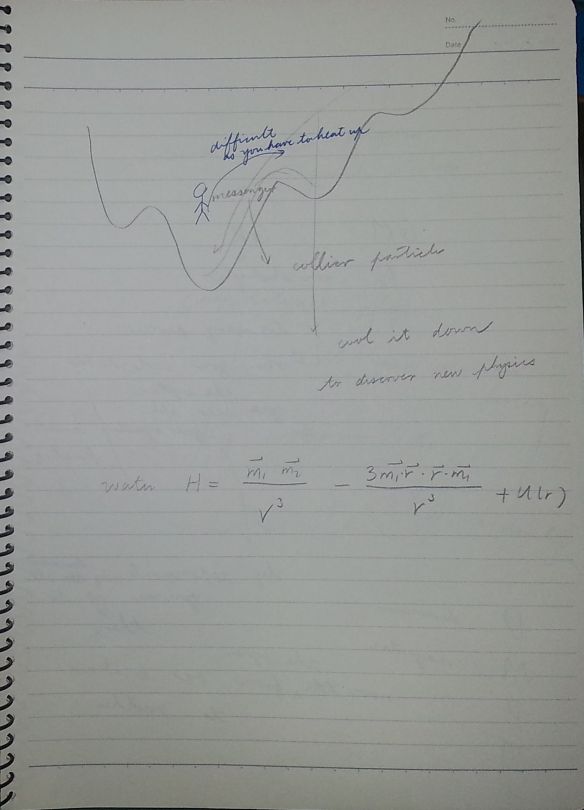 No.
Date
difficult
as you have to heat up
messenger
collier particle
cool it down
to discover new physics
water H = \frac{\vec{m_1} \vec{m_2}}{r^3} - \frac{3\vec{m_1}\cdot\vec{r}\cdot\vec{r}\cdot\vec{m_1}}{r^3} + U(r)